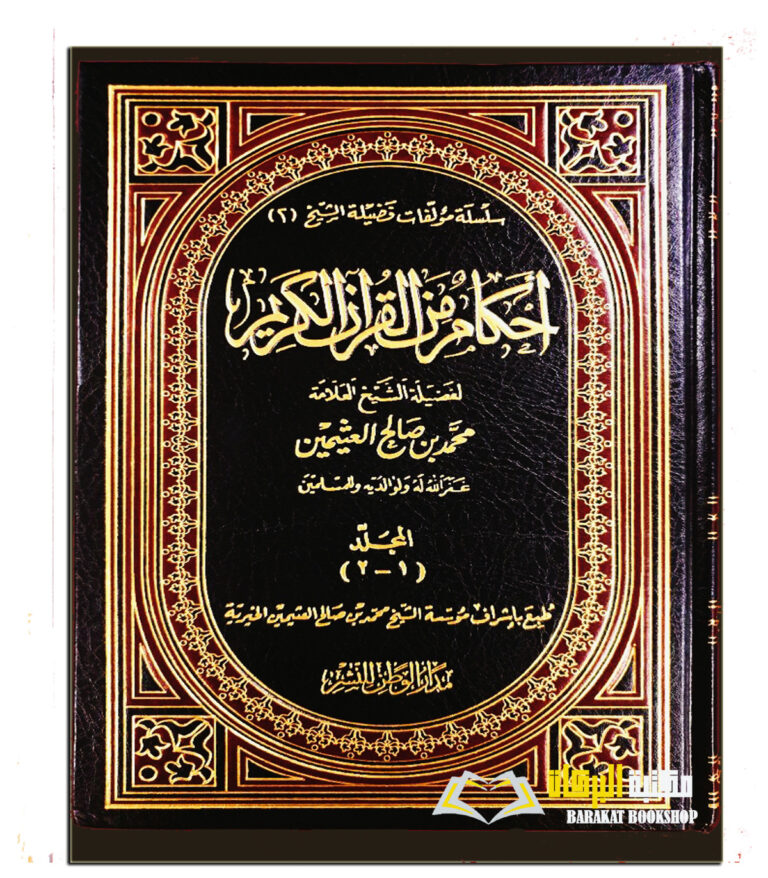 سلسلة مؤلفات فضيلة الشيخ (٢)
أحكام من القرآن الكريم
لفضيلة الشيخ العلامة
محمد بن صالح العثيمين
غفر الله له ولوالديه وللمسلمين
المجلد
(١ – ٢)
طبع بإشراف مؤسسة الشيخ محمد بن صالح العثيمين الخيرية
مدار الوطن للنشر
مكتبة البرهان
BARAKAT BOOKSHOP